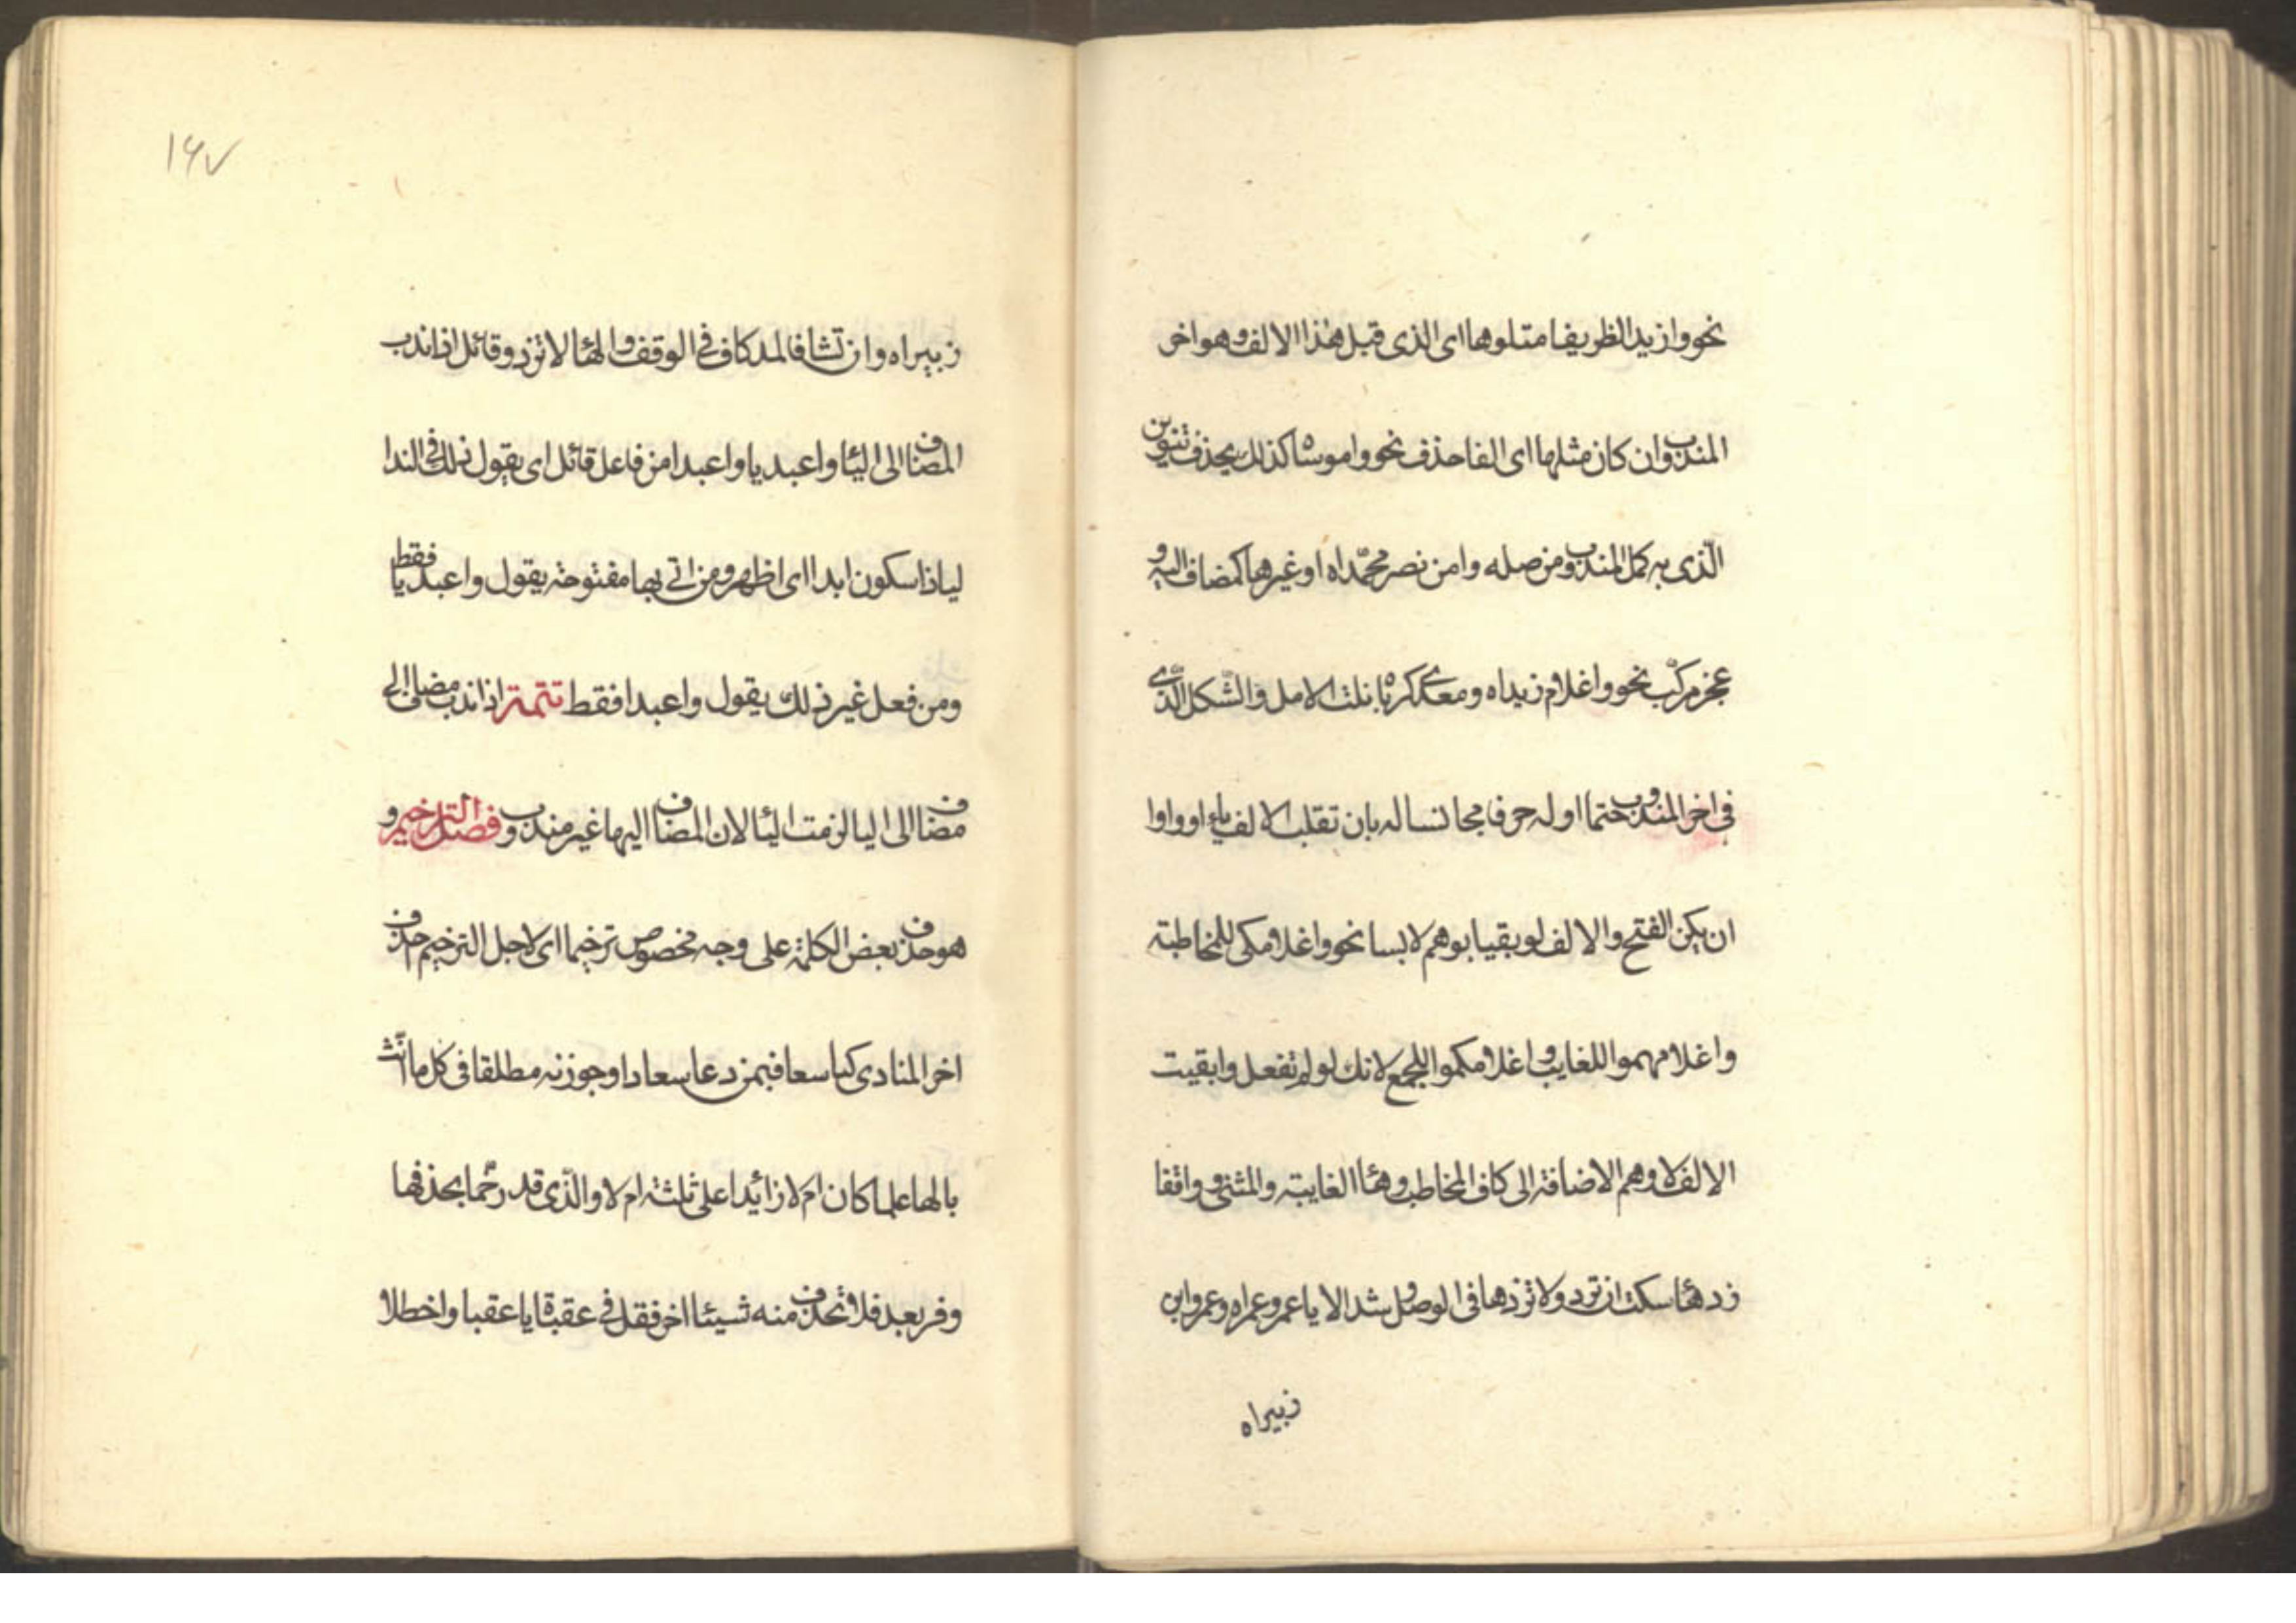 نحو وا زيد الظريفا متلوها اى الذى قبل هذا الالف وهو اخر
المندوب وان كان مثلها اى الفا حذف نحو وا موساه كذلك يحذف تنوين
الّذى به كمل المندوب من صله وا من نصر محمّداه او غيرها كمضاف اليه و
عجز مركّب نحو وا غلام زيداه ومعدى كرباه نلت الامل والشّكل الّذى
فى اخر المندوب حتما اوله حرفا مجانسا له بان تقلب الالف ياء او واوا
ان يكن الفتح والالف لو بقيا بوهم لابسا نحو وا غلامكى للمخاطبة
وا غلامهموا للغايب وا غلامكموا للجمع لانك لو لم تفعل وابقيت
الالف لاوهم الاضافة الى كاف المخاطب وهئا الغايبة والمثنى و واقفا
زد هئا سكت ان ترد ولا تزدها فى الوصل و شد الا يا عمرو عمراه وعمرو ابن
زبيراه
١۶٧
زبيراه وان تشا فالمد كاف فى الوقف والهئا لا تزد وقائل اذا ندب
المضاف الى اليئا وا عبديا وا عبدا من فاعل قائل اى يقول ذلك فى الندا
ليا ذا سكون ابدا اى اظهر ومن اتى بها مفتوحة يقول وا عبديا فقط
ومن فعل غير ذلك يقول وا عبدا فقط تتمة اذا ندب مضاف الى
مضاف الى اليا لزمت اليئا لان المضاف اليها غير مندوب فصل الترخيم و
هو حذف بعض الكلمة على وجه مخصوص ترخيما اى لاجل الترخيم احذف
اخر المنادى كيا سعا فيمن دعا سعادا وجوزنه مطلقا فى كل ما انّث
بالها علما كان ام لا زائيدا على ثلثة ام لا والّذى قد رخّما بحذفها
وفر بعد فلا تحذف منه شيئا اخر فقل فى عقبئاة يا عقبا واخطلا